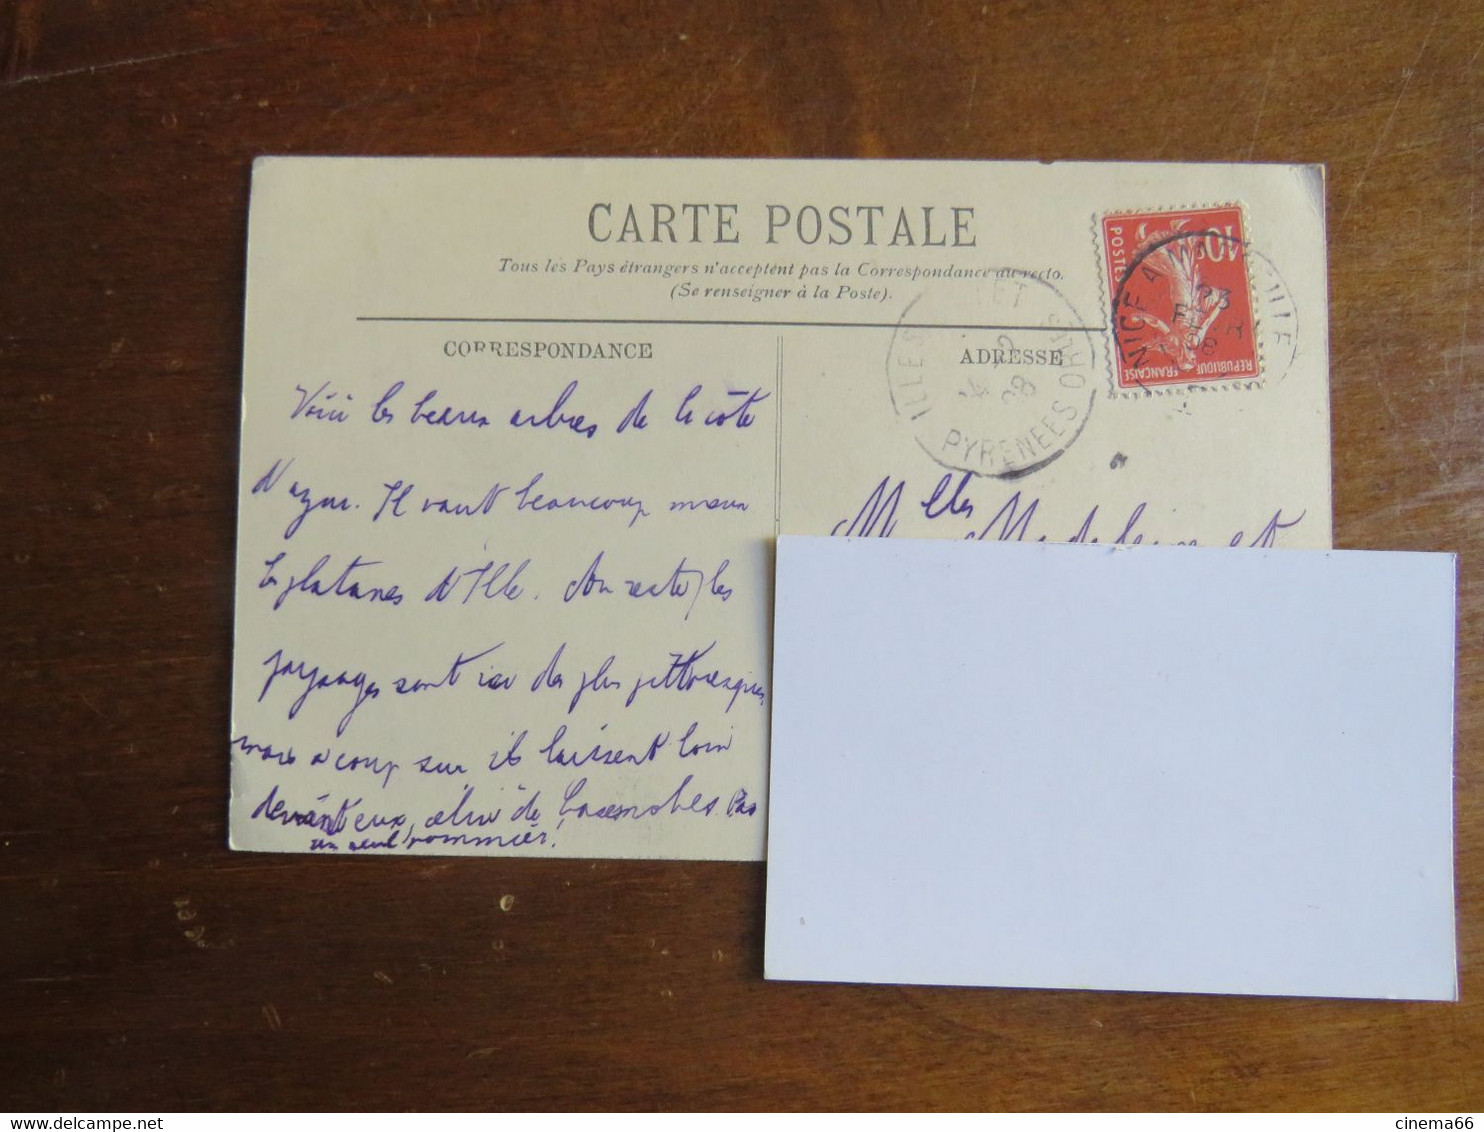 CARTE POSTALE
Tous les Pays étrangers n'acceptent pas la Correspondance au recto.
(Se renseigner à la Poste).
CORRESPONDANCE
ADRESSE
Voici les beaux arbres de la côte
d'azur. Il vaut beaucoup mieux
les platanes d'Ille. Au reste, les
paysages sont ici des plus pittoresques,
mais a coup sur ils laissent loin
devant eux, celui de Casesnobes. Pas
un seul pommier!
Mlles Madeleine et
10c
POSTES
REPUBLIQUE FRANÇAISE
NICE A MARSEILLE
23
FEVR
08
ILLE S TET
24 2
08
PYRENEES ORLES
cinema66